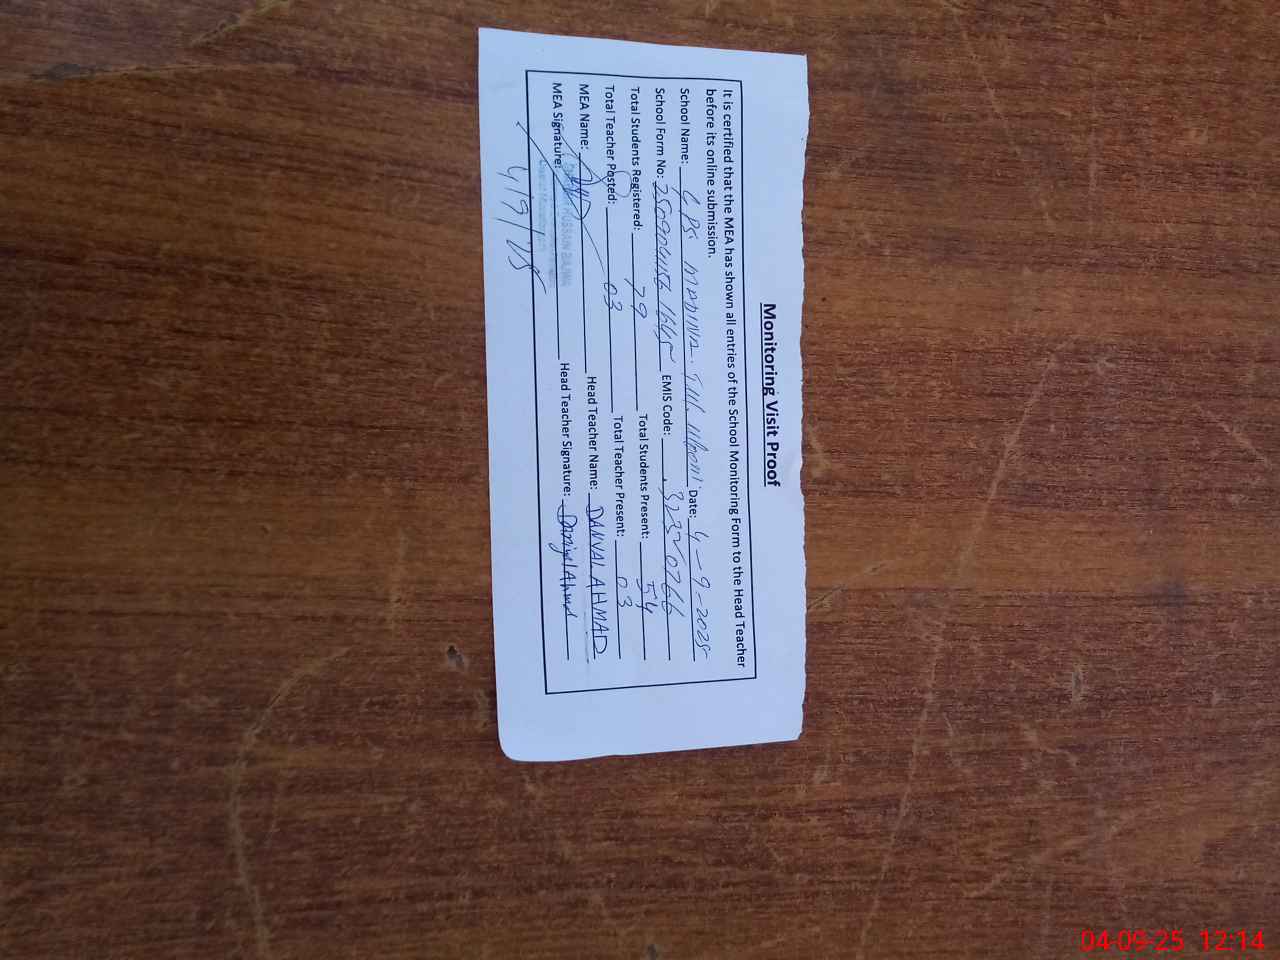 Monitoring Visit Proof
It is certified that the MEA has shown all entries of the School Monitoring Form to the Head Teacher
before its online submission.
School Name: GPS MADINA Date: 4-9-2025
School Form No: EMIS Code: 32320766
Total Students Registered: 79 Total Students Present: 54
Total Teacher Posted: 03 Total Teacher Present: 03
MEA Name: Head Teacher Name: DANYAL AHMAD
MEA Signature: Head Teacher Signature: Daniyal Ahmad
HUSSAIN
4/9/25
04-09-25 12:14